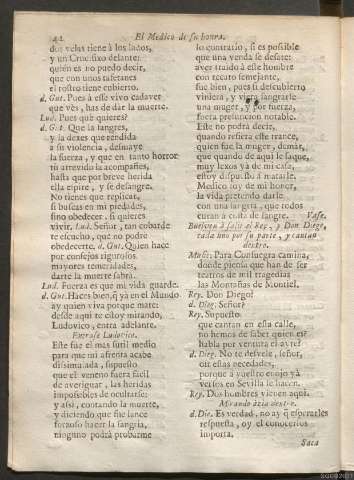 42
El Medico de su honra.
dos velas tiene à los lados,
y un Crucifixo delante:
quien es no puedo decir,
que con unos tafetanes
el rostro tiene cubierto.
d. Gut. Pues à esse vivo cadaver
que vès, has de dàr la muerte.
Lud. Pues què quieres?
d. Gut. Que la sangres,
y la dexes que rendida
à su violencia, desmaye
la fuerza, y que en tanto horror
tù atrevido la acompañes,
hasta que por breve herida
ella espire, y se desangre.
No tienes que replicar,
si buscas en mi piedades,
sino obedecer, si quieres
vivir. Lud. Señor, tan cobarde
te escucho, que no podrè
obedecerte. d. Gut. Quien hace
por consejos rigurosos
mayores temeridades,
darte la muerte sabrà.
Lud. Fuerza es que mi vida guarde.
d. Gut. Haces bien, q̃ ya en el Mundo
ay quien viva porque mate:
desde aqui te estoy mirando,
Ludovico, entra adelante.
Entrase Ludovico.
Este fue el mas sutil medio
para que mi afrenta acabe
dissimulada, supuesto
que el veneno fuera facil
de averiguar, las heridas
impossibles de ocultarse:
y assi, contando la muerte,
y diciendo que fue lance
forzoso hacer la sangria,
ninguno podrà probarme
lo contrario, si es possible
que una venda se desate:
aver traido à este hombre
con recato semejante,
fue bien, pues si descubierto
viniera, y viera sangrarse
una muger, y por fuerza,
fuera presuncion notable.
Este no podrà decir,
quando refiera este trance,
quien fue la muger, demàs,
que quando de aqui le saque,
muy lexos yà de mi casa,
estoy dispuesto à matarle.
Medico soy de mi honor,
la vida pretendo darle
con una sangria, que todos
curan à costa de sangre. Vase.
Buelven à salir el Rey, y Don Diego,
cada uno por su parte, y cantan
dentro.
Musi. Para Consuegra camina,
donde piensa que han de ser
teatros de mil tragedias
las Montañas de Montiel.
Rey. Don Diego?
d. Dieg. Señor?
Rey. Supuesto
que cantan en esta calle,
no hemos de saber quien es?
habla por ventura el ayre?
d. Dieg. No te desvele, señor,
oir estas necedades,
porque à vuestro enojo yà
versos en Sevilla se hacen.
Rey. Dos hombres vienen aqui.
Mirando àzia dentro.
d. Die. Es verdad, no ay q̃ esperarles
respuesta, oy el conocerlos
importa.
Saca